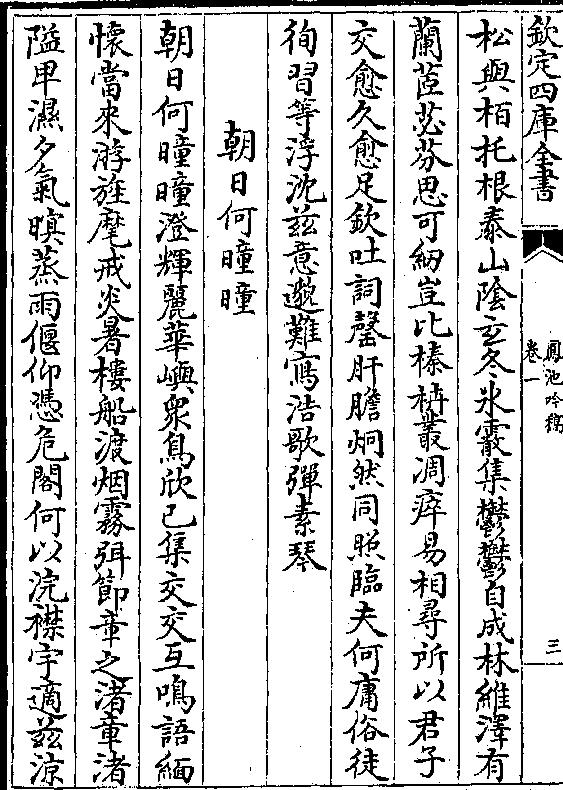 欽定四庫全書
鳳池吟稿
卷一
三
松與栢托根泰山陰玄冬氷霰集鬱鬱自成林維澤有
蘭茝苾芬思可紉豈比榛枿叢凋瘁易相尋所以君子
交愈久愈足欽吐詞罄肝膽炯然同照臨夫何庸俗徒
徇習等浮沈兹意邈難寫浩歌彈素琴
朝日何曈曈
朝日何曈曈澄輝麗華嶼衆鳥欣已集交交互鳴語緬
懷當來游旌麾戒炎暑樓船渡烟霧弭節章之渚章渚
隘卑濕夕氣暝蒸雨偃仰憑危閣何以浣襟宇適兹涼